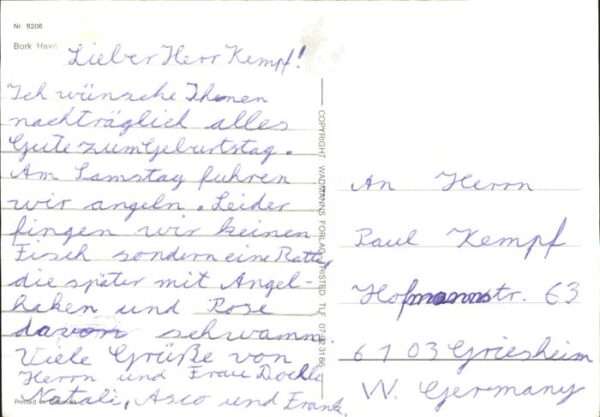 Nr. 8206
Bork Havn
Lieber Herr Kempf!
Ich wünsche Ihnen
nachträglich alles
Gute zum Geburtstag.
Am Samstag fuhren
wir angeln. Leider
fingen wir keinen
Fisch sondern eine Ratte,
die später mit Angel-
haken und Pose
davon schwamm.
Viele Grüße von
Herrn und Frau
Natali, Asco und Frank.
COPYRIGHT WADMANNS FORLAG TLF.
An Herrn
Paul Kempf
Hofmannstr. 63
6103 Griesheim
W. Germany
Printed in